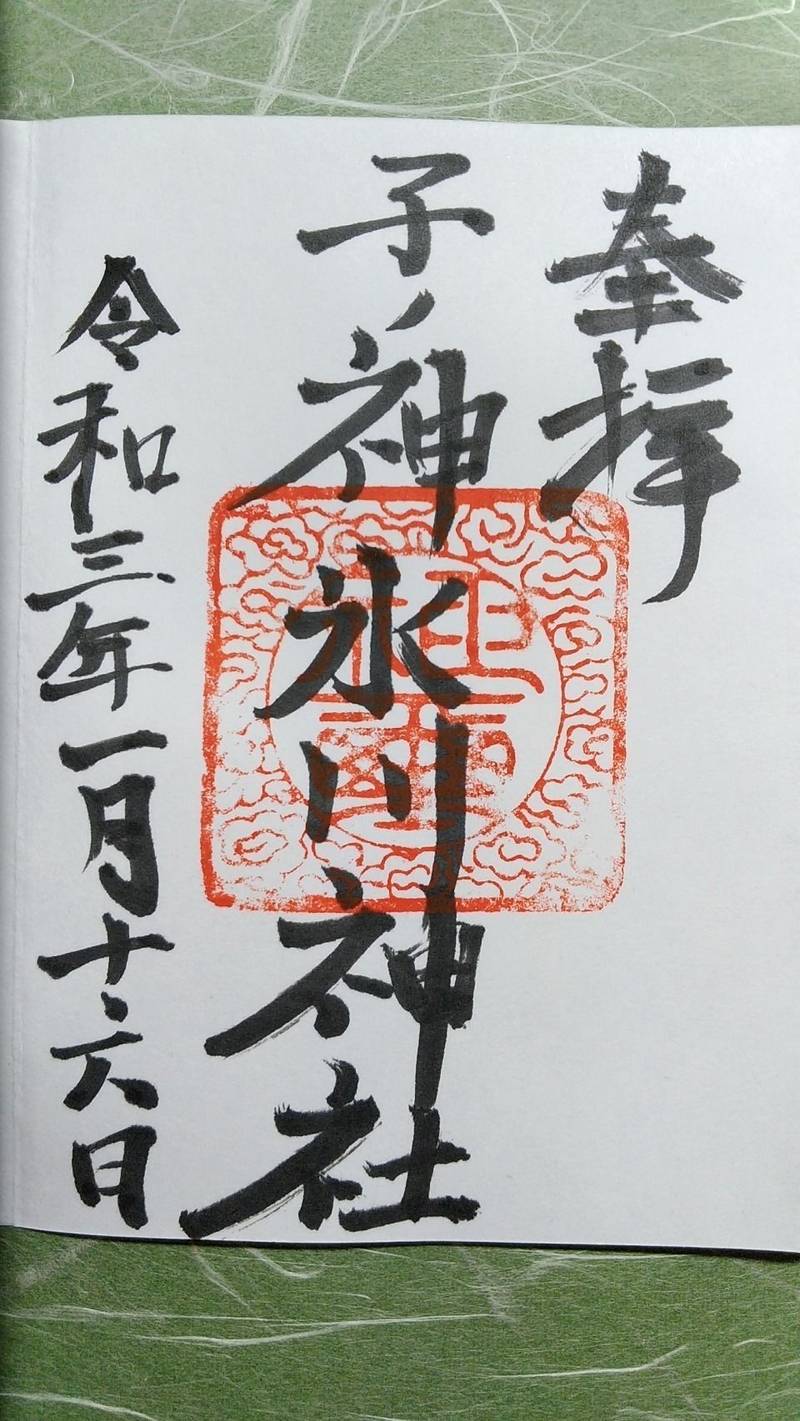 奉拝
子ノ神氷川神社
令和三年一月十六日